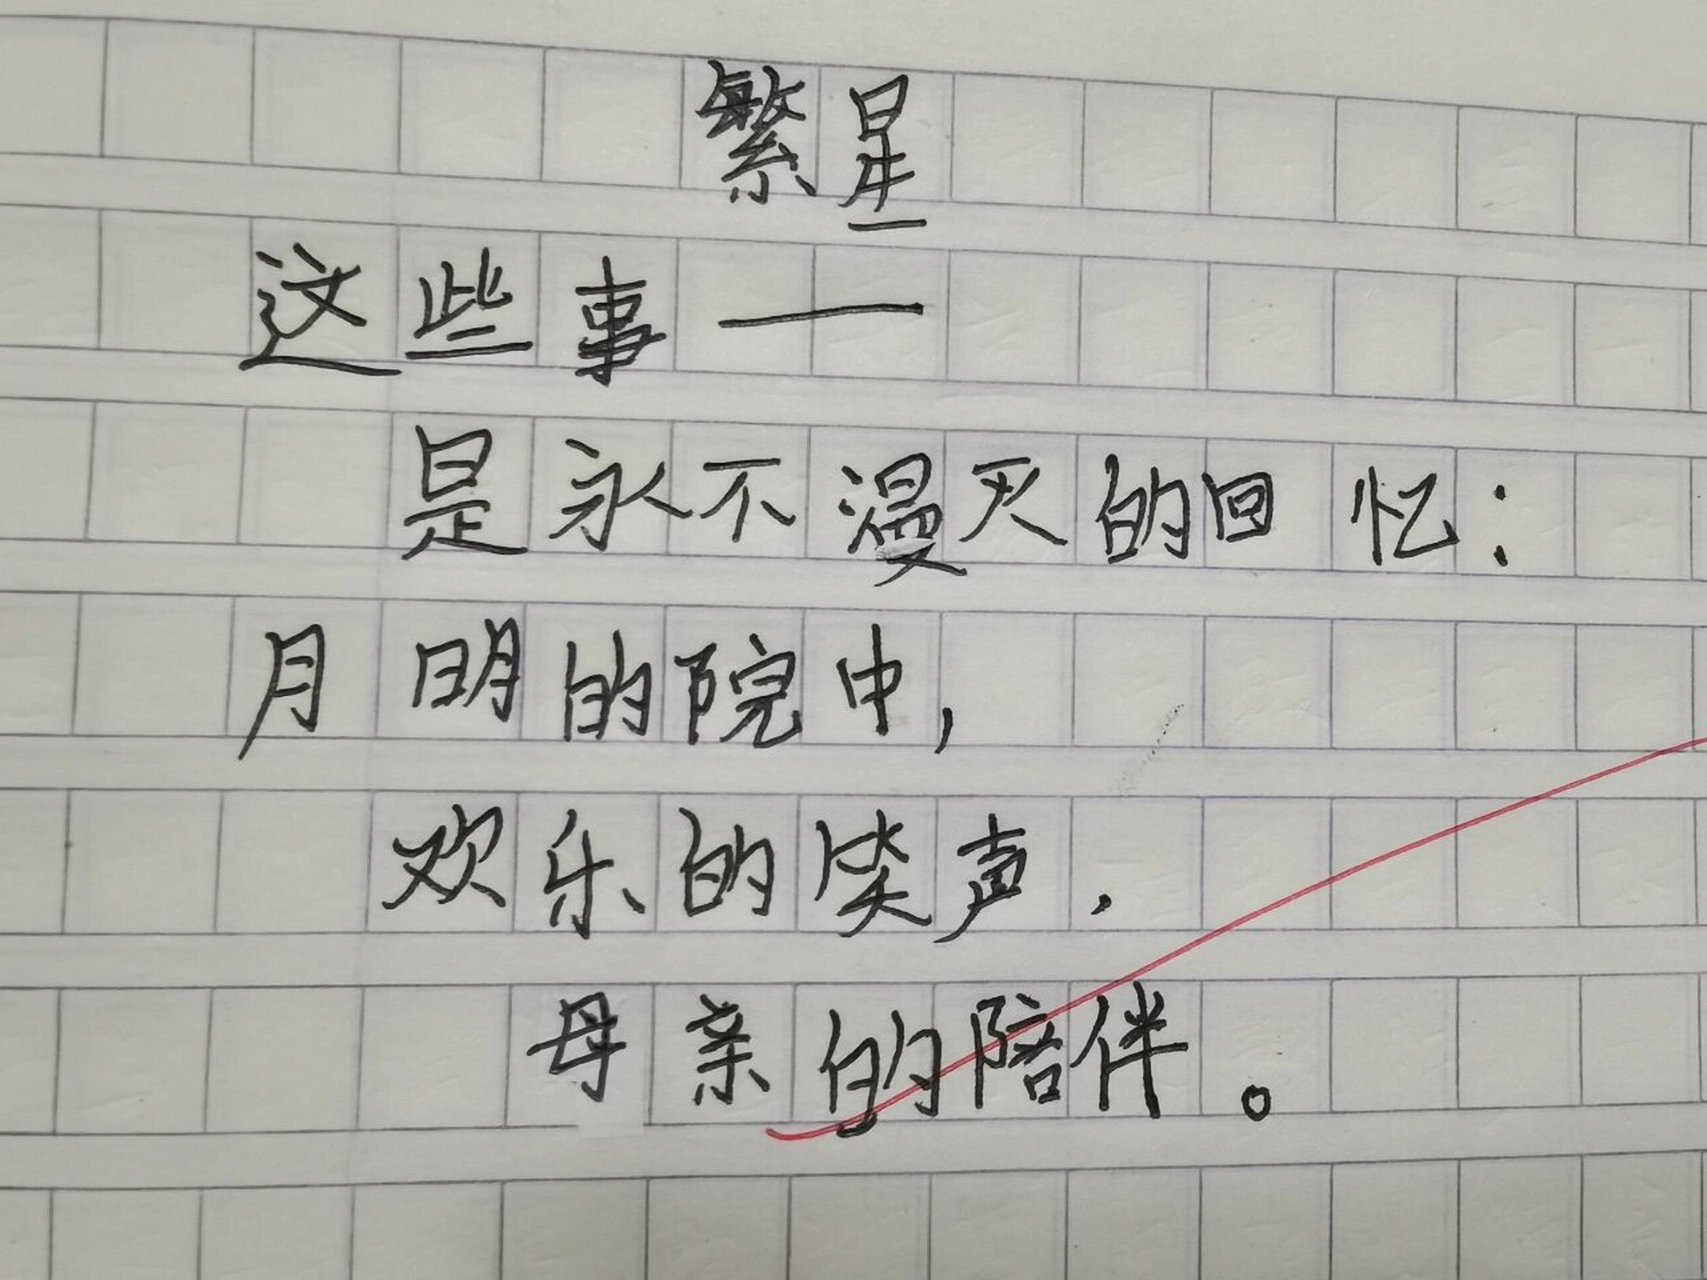 繁星
这些事——
是永不漫灭的回忆：
月明的院中，
欢乐的笑声，
母亲的陪伴。